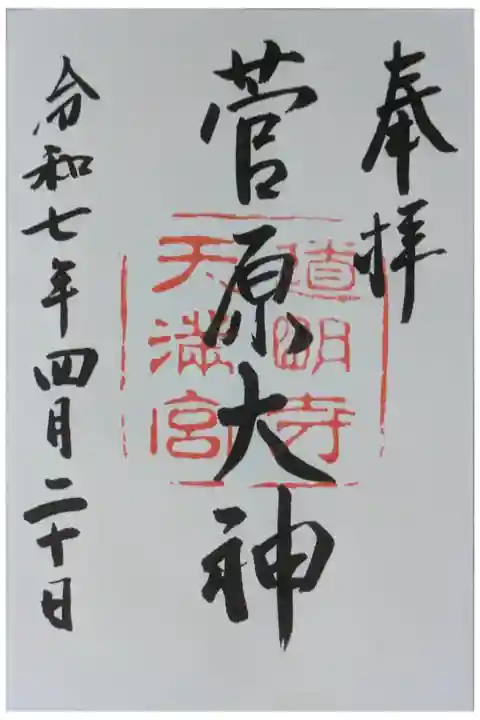 奉拝
菅原大神
道明寺
天満宮
令和七年四月二十日